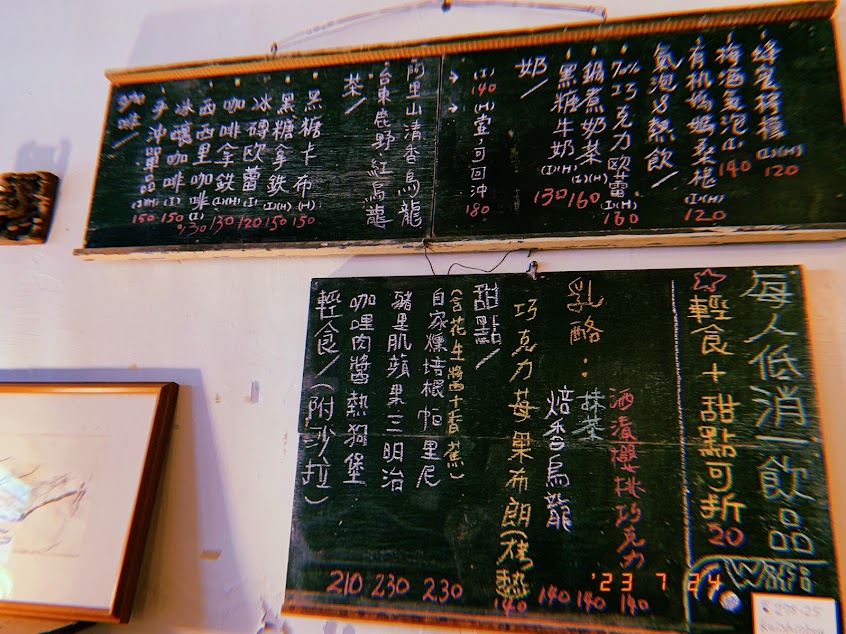 咖啡/
手沖單品 (I)(H) 150
冰釀咖啡 (I) 150
西西里咖啡 (I) 130
咖啡拿鐵 (I)(H) 130
冰磚歐蕾 (I) 120
黑糖拿鐵 (I)(H) 150
黑糖卡布 (H) 150
茶/
台東鹿野紅烏龍
阿里山清香烏龍
→ (I) 140
→ (H)壺,可回沖 180
奶/
黑糖牛奶 (I)(H) 130
鍋煮奶茶 (I)(H) 160
70%巧克力歐蕾 (I)(H) 160
氣泡&熱飲/
有机媽媽桑椹 (I)(H) 120
梅酒氣泡 (I) 140
蜂蜜檸檬 (I)(H) 120
每人低消一飲品
☆輕食+甜點可折20
Wifi
輕食/(附沙拉)
咖哩肉醬熱狗堡 210
豬里肌蘋果三明治 230
自家燻培根帕里尼 230
(含花生醬+香蕉)
甜點/
巧克力莓果布朗(烤熱) 140
乳酪:
焙香烏龍 140
抹茶 140
酒漬櫻桃巧克力 140
'23 7 24